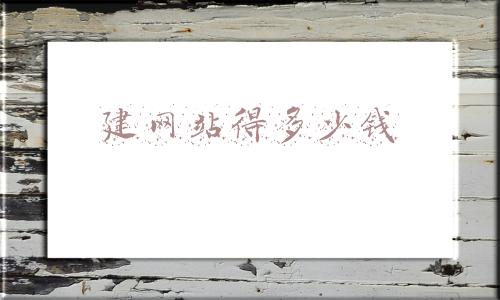 建网站得多少钱